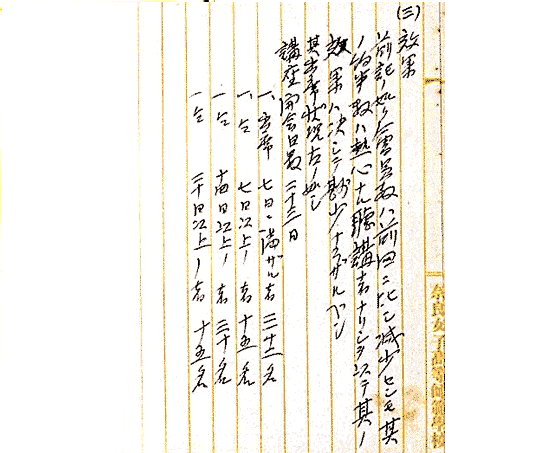 (三) 効果
前記ノ如ク会員数ハ前回ニ比シ減少セシモ其
ノ数ハ熱心ナル聴講者ナリシヲ以テ其ノ
効果ハ決シテ尠少ナラザルベシ
其出席状況左ノ如シ
講座開会日数 二十三日
一、出席 七日ニ満ザル者 三十二名
一、仝 七日以上ノ者 十五名
一、仝 十四日以上ノ者 三十名
一、仝 二十日以上ノ者 十五名
奈良女子高等師範學校